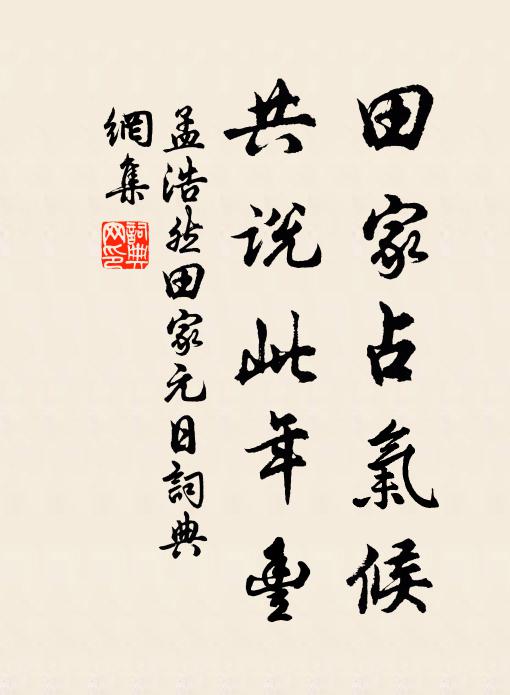 田家占氣候
共说此年豐
孟浩然田家元日詞典
網集
詞典
网印